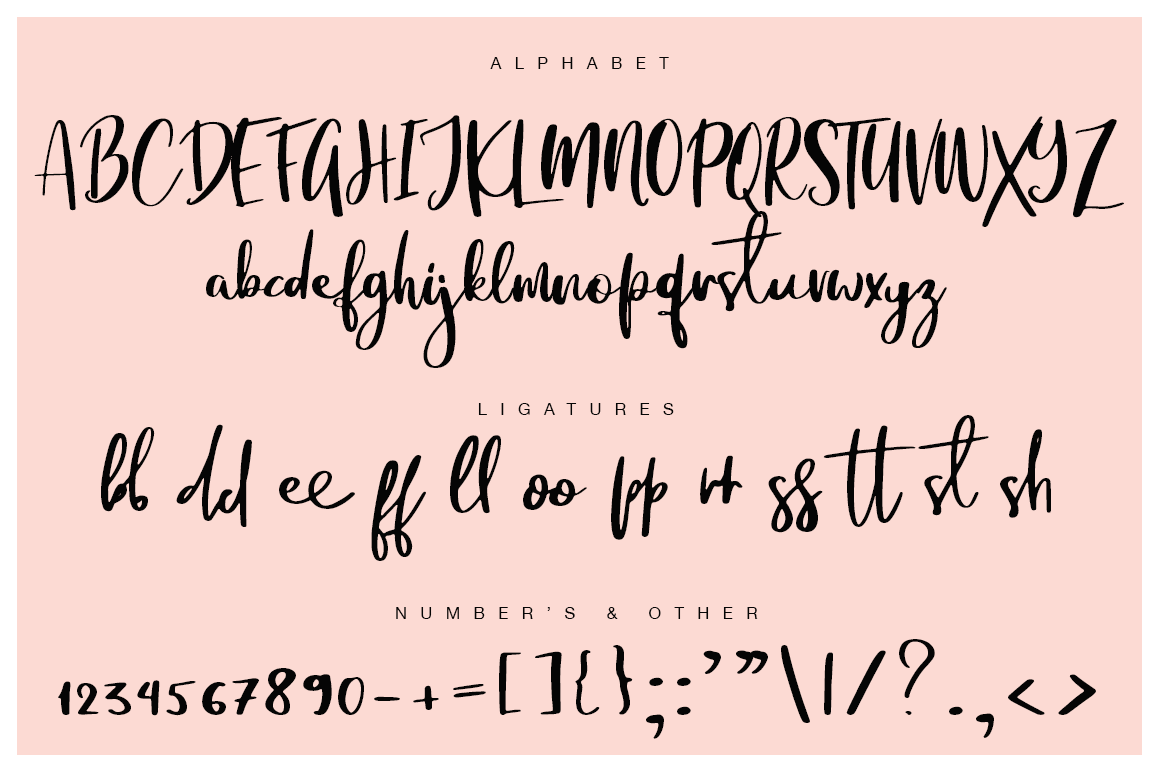 ALPHABET
ABCDEFGHIJKLMNOPQRSTUVWXYZ
abcdefghijklmnopqrstuvwxyz
LIGATURES
bb dd ee ff ll oo pp rt ss tt st sh
NUMBER'S & OTHER
1234567890-+=[]{};:’”\|/?.,<>